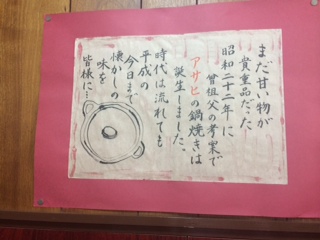 まだ甘い物が
貴重品だった
昭和二十二年に
曽祖父の考案で
アサヒの鍋焼きは
誕生しました。
時代は流れても
平成の
今日まで
懐かしの
味を
皆様に…